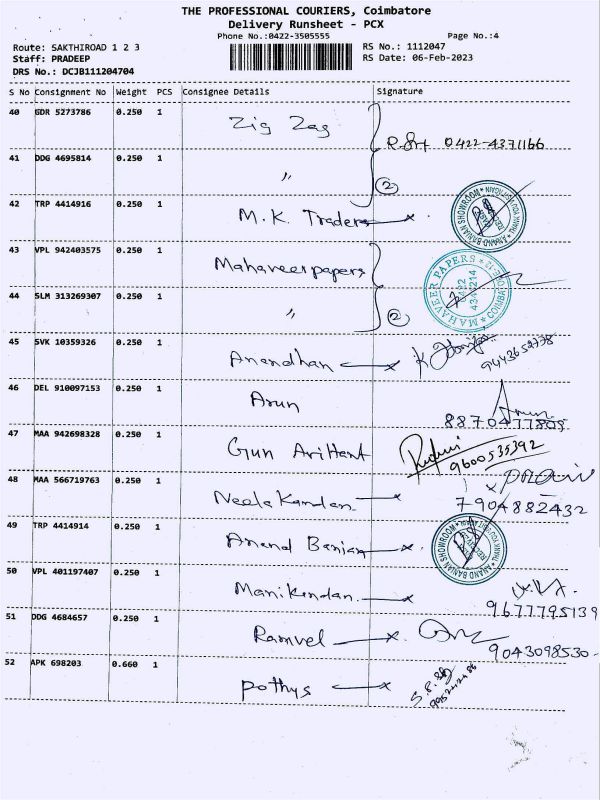 THE PROFESSIONAL COURIERS, Coimbatore
Delivery Runsheet - PCX
Phone No.:0422-3505555 Page No.:4
Route: SAKTHIROAD 1 2 3 RS No.: 1112047
Staff: PRADEEP RS Date: 06-Feb-2023
DRS No.: DCJB111204704
S No Consignment No Weight PCS Consignee Details Signature
40 GDR 5273786 0.250 1 Zig Zag 0422-4371166
41 DDG 4695814 0.250 1 〃 2
42 TRP 4414916 0.250 1 M.K. Traders x ANAND BANIAN SHOWROOM
43 VPL 942403575 0.250 1 Mahaveer papers MAHAVEER PAPERS
44 SLM 313269307 0.250 1 〃 2
45 SVK 10359326 0.250 1 Anandhan x
46 DEL 910097153 0.250 1 Arun Arun
47 MAA 942698328 0.250 1 Gun Arihant 9600535392
48 MAA 566719763 0.250 1 Neela Kandan x 7904882432
49 TRP 4414914 0.250 1 Anand Banian x ANAND BANIAN SHOWROOM
50 VPL 401197407 0.250 1 Manikandan x 9677795139
51 DDG 4684657 0.250 1 Ramvel x 9043098530
52 APK 698203 0.660 1 Pothys x